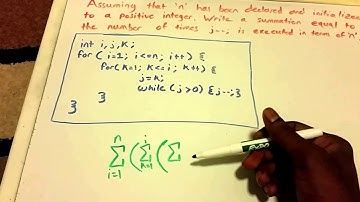 Assuming that 'n' has been declared and initialized
to a positive integer. Write a summation equal to
the number of times j--; is executed in term of 'n'.
int i, j, K;
for ( i=1; i<=n; i++) {
for(K=1; K<=i; K++) {
j=K;
while (j>0) {j--;}
}
}
n i
∑ ( ∑ ( ∑
i=1 K=1